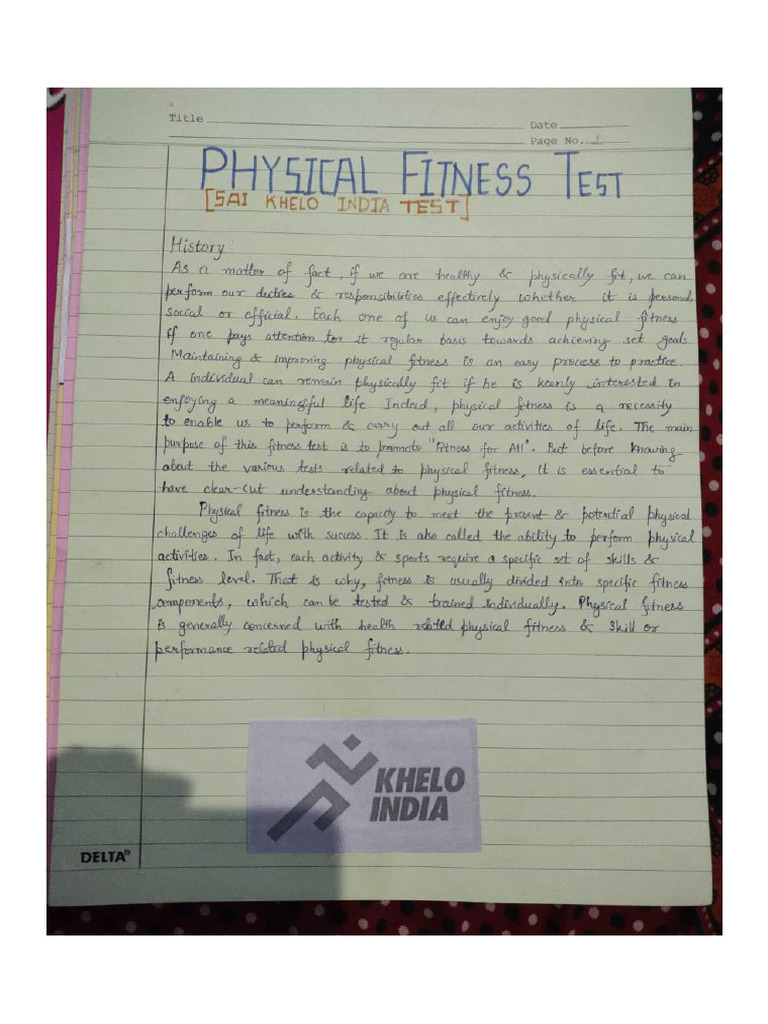 Title
Date
Page No. 1
PHYSICAL FITNESS TEST
[SAI KHELO INDIA TEST]
History:
As a matter of fact, if we are healthy & physically fit, we can
perform our duties & responsibilities effectively whether it is personal,
social or official. Each one of us can enjoy good physical fitness
if one pays attention for it regular basis towards achieving set goals.
Maintaining & improving physical fitness is an easy process to practice.
A individual can remain physically fit if he is keenly interested in
enjoying a meaningful life Indeed, physical fitness is a necessity
to enable us to perform & carry out all our activities of life. The main
purpose of this fitness test is to promote "Fitness for All". But before knowing
about the various tests related to physical fitness, it is essential to
have clear-cut understanding about physical fitness.
Physical fitness is the capacity to meet the present & potential physical
challenges of life with success. It is also called the ability to perform physical
activities. In fact, each activity & sports require a specific set of skills &
fitness level. That is why, fitness is usually divided into specific fitness
components, which can be tested & trained individually. Physical fitness
is generally concerned with health related physical fitness & skill or
performance related physical fitness.
KHELO
INDIA
DELTA